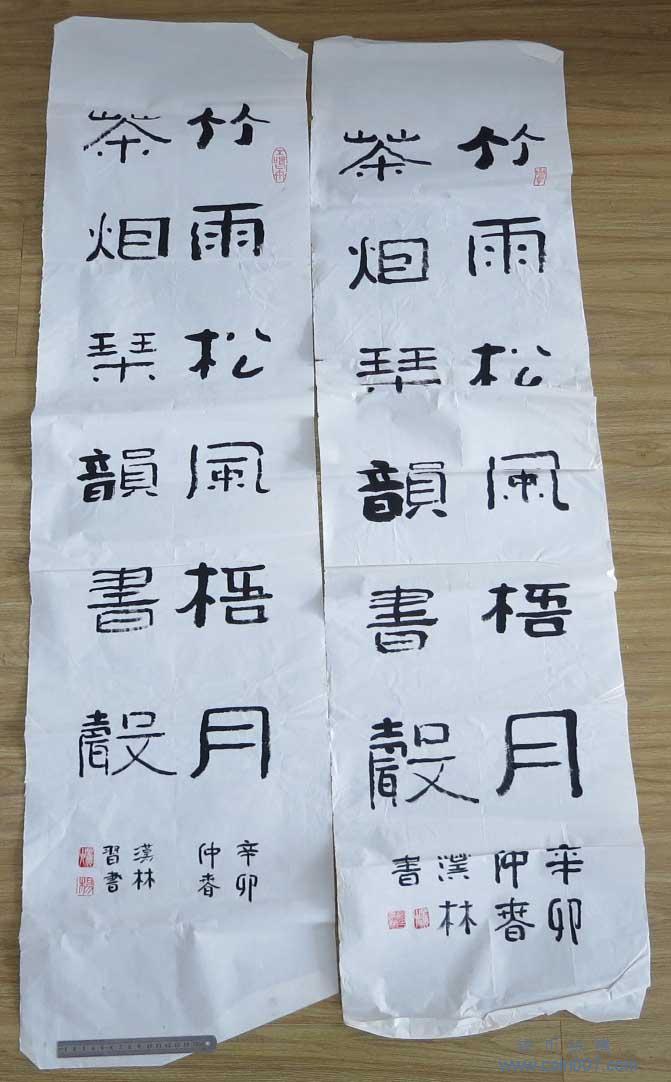 竹雨松風梧月
茶烟琹韻書聲
辛卯
仲春
漢林
習書
竹雨松風梧月
茶烟琹韻書聲
辛卯
仲春
漢林
書
www.coin007.com